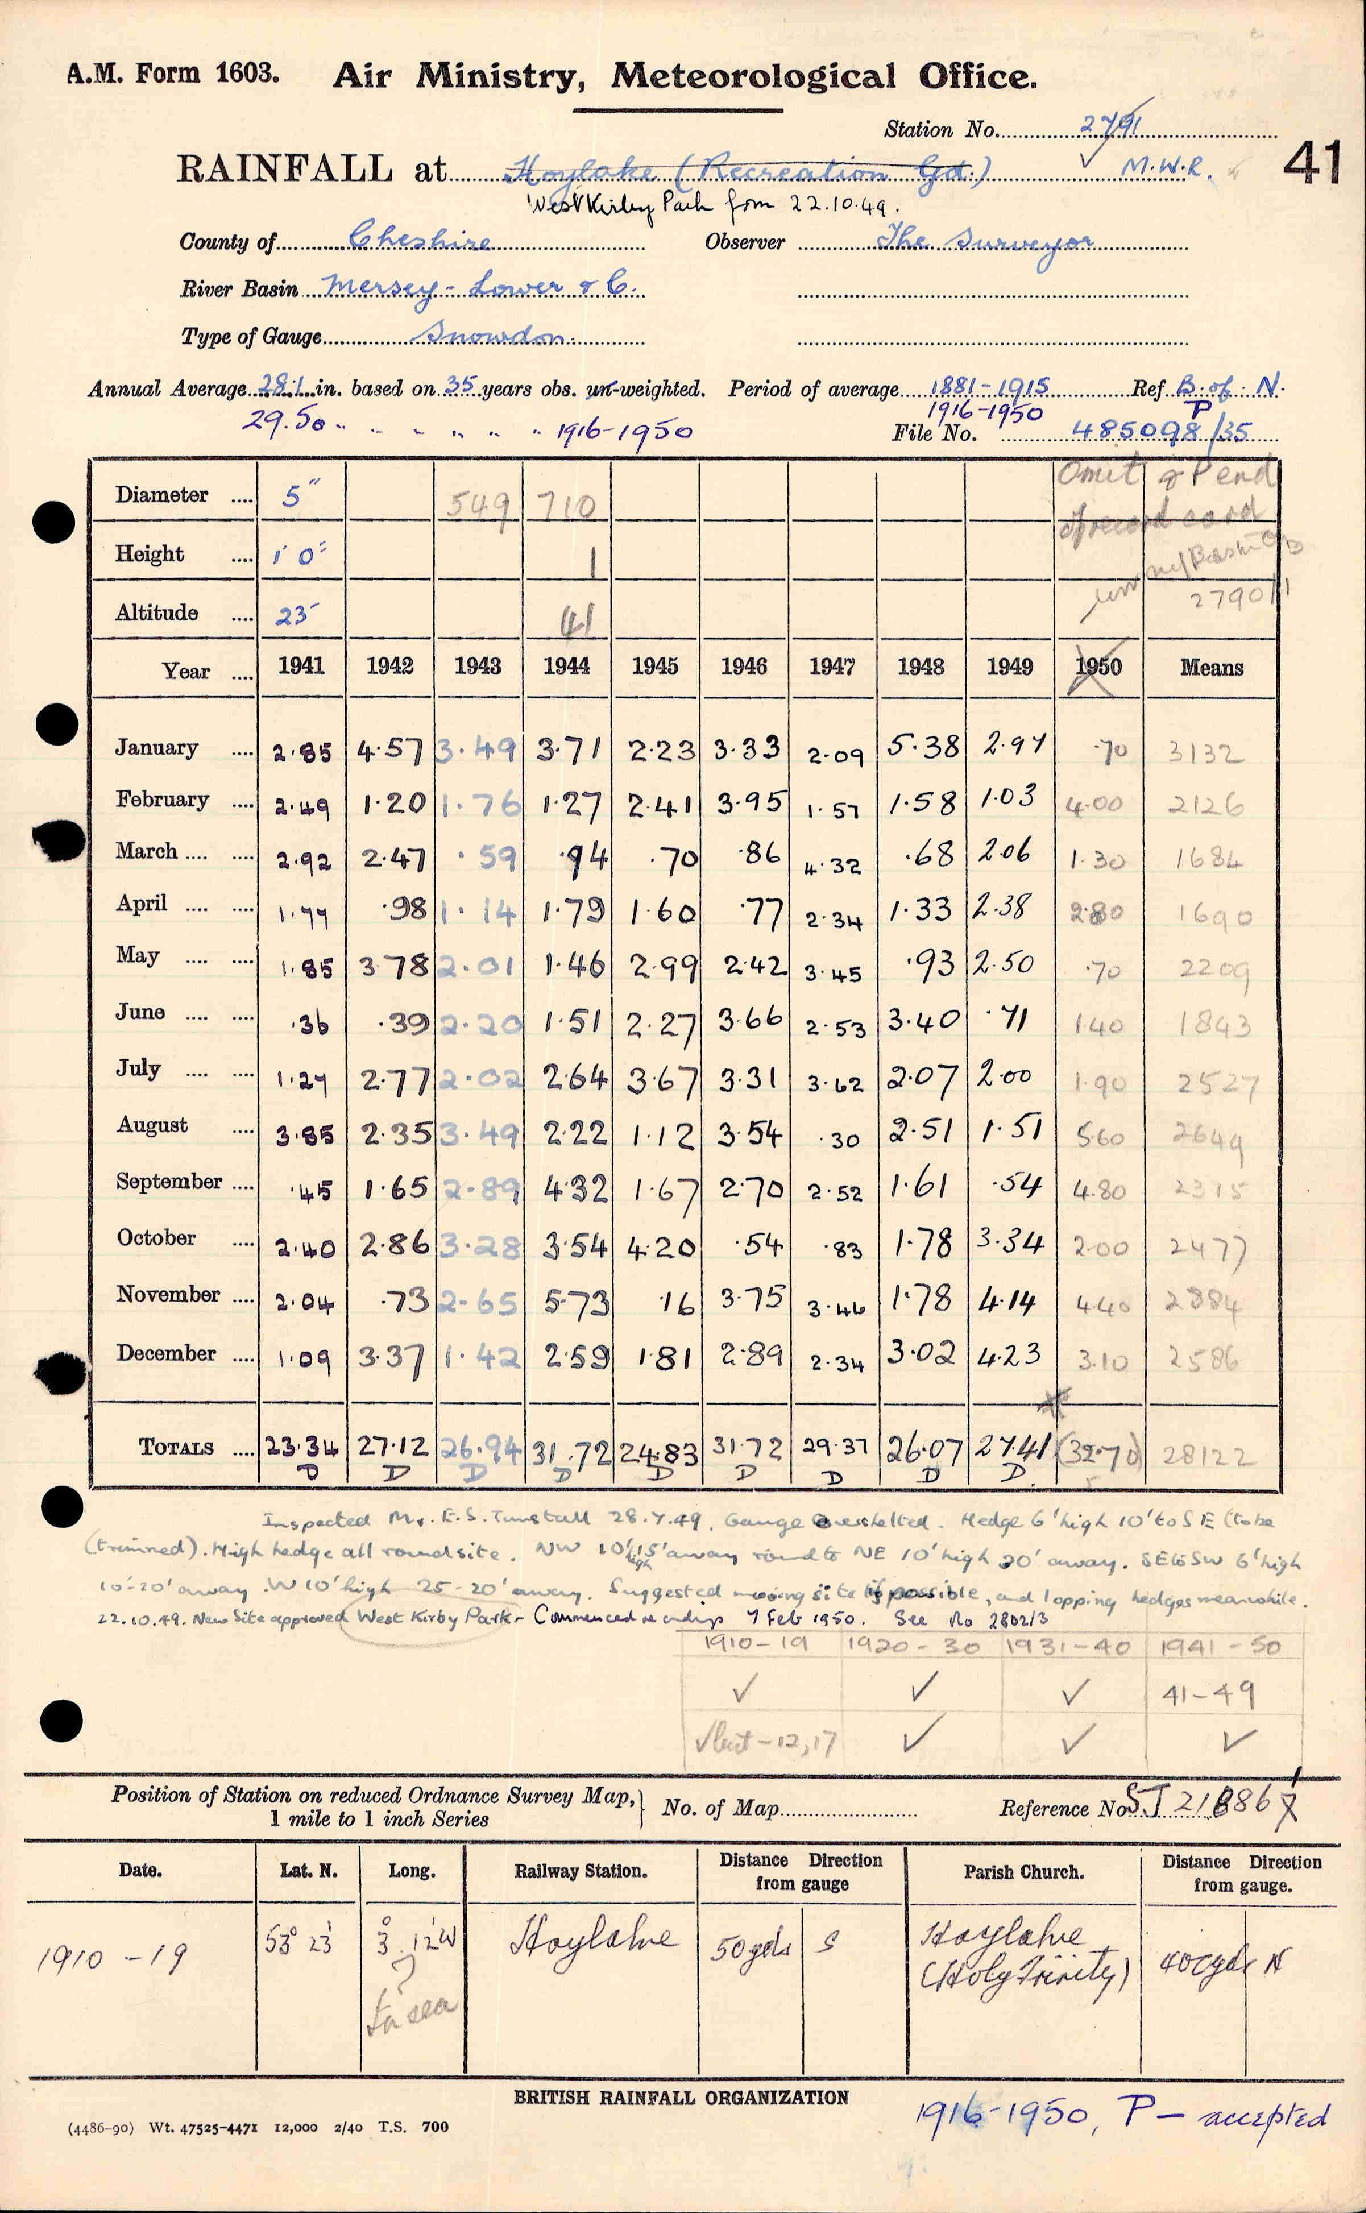 A.M. Form 1603. Air Ministry, Meteorological Office.
Station No. 2791
RAINFALL at Hoylake (Recreation Gd.) M.W.R. 41
West Kirby Park from 22.10.49.
County of Cheshire Observer The Surveyor
River Basin Mersey - Lower & C.
Type of Gauge Snowdon
Annual Average 28.1 in. based on 35 years obs. un-weighted. Period of average 1881-1915 Ref B. of N.
29.50 " " " " " " 1916-1950 1916-1950 P
File No. 485098/35
Diameter 5" 549 710 Omit & P end
of record card
Height 1' 0" 1
Altitude 23 41 2790/1
Year 1941 1942 1943 1944 1945 1946 1947 1948 1949 1950 Means
January 2.85 4.57 3.49 3.71 2.23 3.33 2.09 5.38 2.97 .70 3132
February 2.49 1.20 1.76 1.27 2.41 3.95 1.57 1.58 1.03 4.00 2126
March 2.92 2.47 .59 .94 .70 .86 4.32 .68 2.06 1.30 1684
April 1.77 .98 1.14 1.79 1.60 .77 2.34 1.33 2.38 2.80 1690
May 1.85 3.78 2.01 1.46 2.99 2.42 3.45 .93 2.50 .70 2209
June .36 .39 2.20 1.51 2.27 3.66 2.53 3.40 .71 1.40 1843
July 1.27 2.77 2.02 2.64 3.67 3.31 3.62 2.07 2.00 1.90 2527
August 3.85 2.35 3.49 2.22 1.12 3.54 .30 2.51 1.51 5.60 2649
September .45 1.65 2.89 4.32 1.67 2.70 2.52 1.61 .54 4.80 2315
October 2.40 2.86 3.28 3.54 4.20 .54 .83 1.78 3.34 2.00 2477
November 2.04 .73 2.65 5.73 .16 3.75 3.46 1.78 4.14 4.40 2884
December 1.09 3.37 1.42 2.59 1.81 2.89 2.34 3.02 4.23 3.10 2586
TOTALS 23.34 27.12 26.94 31.72 24.83 31.72 29.37 26.07 27.41 (32.70) 28122
D D D D D D D D D
Inspected Mr. E.S. Tunstall 28.7.49. Gauge Oversheltered. Hedge 6' high 10' to SE (to be
(trimmed). High hedge all round site. NW 10' high 15' away round to NE 10' high 20' away. SE to SW 6' high
10'-20' away. W 10' high 25-20' away. Suggested moving site if possible, and lopping hedges meanwhile.
22.10.49. New Site approved West Kirby Park - Commenced readings 7 Feb 1950. See No 2802/3
1910-19 1920-30 1931-40 1941-50
✓ ✓ ✓ 41-49
✓ but -12,17 ✓ ✓ ✓
Position of Station on reduced Ordnance Survey Map, 1 mile to 1 inch Series } No. of Map Reference No.
Date. Lat. N. Long. Railway Station. Distance Direction from gauge Parish Church. Distance Direction from gauge.
1910-19 53° 23' 3° 12' W Hoylake 50yds S Hoylake (Holy Trinity) 400yds N
?
In sea
BRITISH RAINFALL ORGANIZATION
(4486-90) Wt. 47525-4471 12,000 2/40 T.S. 700
1916-1950, P - accepted